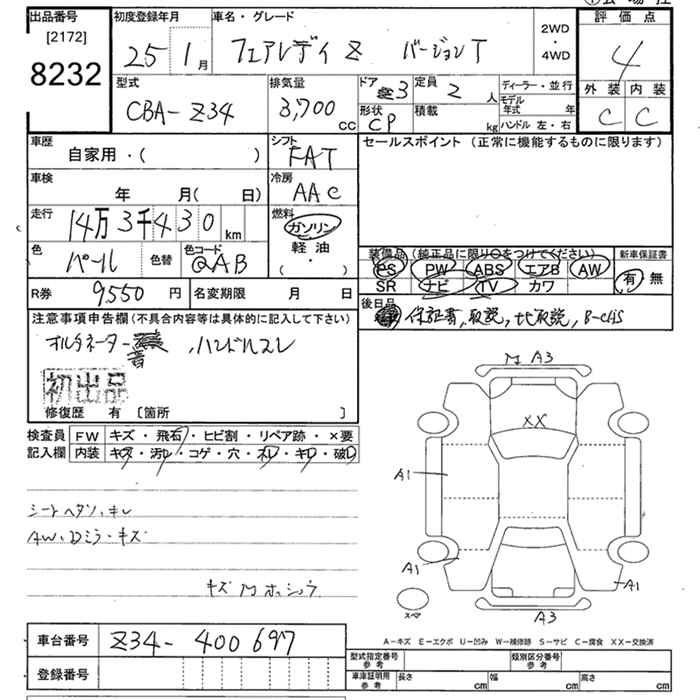 出品番号 初度登録年月 車名・グレード 評価点
[2172] 25 年 1月 フェアレディ Z バージョンT 2WD・4WD 4
8232
型式 CBA-Z34 排気量 3,700 cc ドア 3 定員 2 人 ディーラー・並行 外装 内装
形状 CP 積載 kg モデル年式 年 C C
ハンドル 左・右
車歴 自家用・( ) シフト FAT セールスポイント (正常に機能するものに限ります)
車検 年 月( 日) 冷房 AAC
走行 14万3千430 km 燃料 ガソリン 軽油 ( ・ )
色 パール 色替 色コード QAB
装備品 (純正品に限り○をつけてください) 新車保証書
PS PW ABS エアB AW 有 無
SR ナビ TV カワ
R券 9,550 円 名変期限 月 日
後日品 保証書, 取説, ナビ取説, B-CAS
注意事項申告欄 (不具合内容等は具体的に記入して下さい)
オルタネーター 音, ハンドルスレ
初出品
修復歴 有 [箇所 ]
検査員 FW キズ・飛石・ヒビ割・リペア跡・×要
記入欄 内装 キズ・汚レ・コゲ・穴・スレ・キレ・破レ
シートヘタリ・キレ
AW・Dミラ・キズ
キズ M ホシュウ
M A3
XX
A1
A1
A1
スペア
A3
A-キズ E-エクボ U-凹み W-補修跡 S-サビ C-腐食 XX-交換済
車台番号 Z34-400697
登録番号
型式指定番号 参考 類別区分番号 参考
車庫証明用 参考 長さ cm 幅 cm 高さ cm